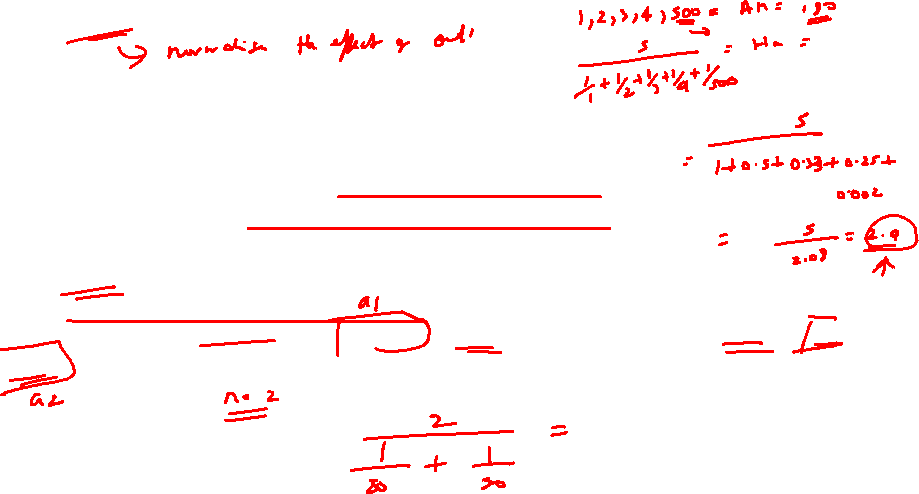 normalise the effect of outl
1, 2, 3, 4, 500 = Am =
5
= Hm =
1/1 + 1/2 + 1/3 + 1/4 + 1/500
5
=
1 + 0.5 + 0.33 + 0.25 +
0.002
= 5 / 2.08 = 2.4
a1
a2
n = 2
2
=
1 + 1